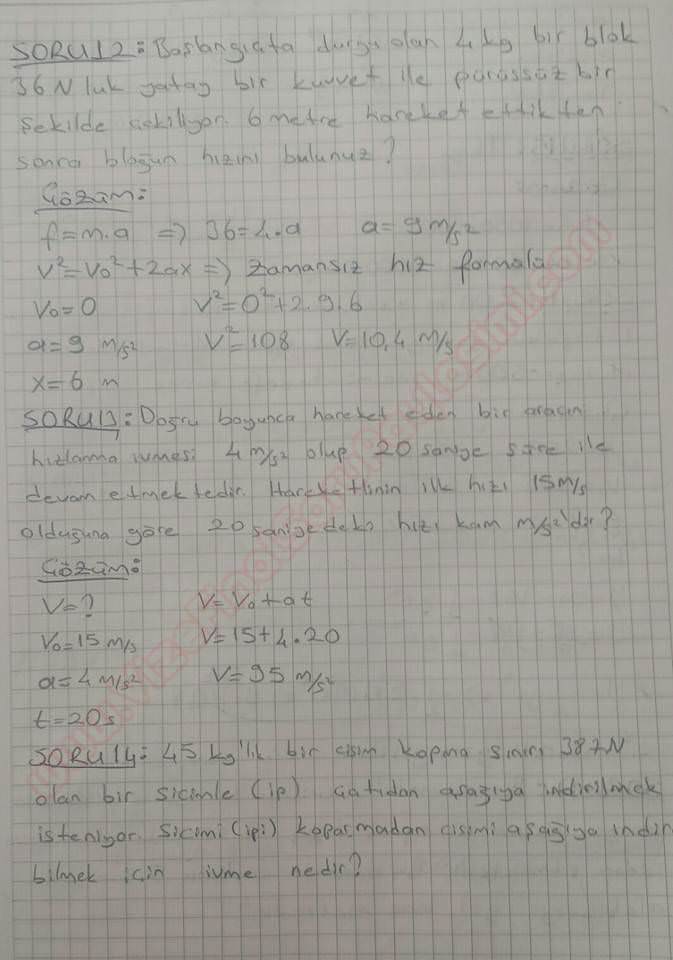 SORU12: Başlangıçta durgu olan 4 kg bir blok
36N luk yatay bir kuvvet ile pürüssüz bir
şekilde çekiliyor. 6 metre hareket ettikten
sonra bloğun hızını bulunuz?
Çözüm:
f=m.a => 36=4.a a=9 m/s²
V²=V₀²+2ax => Zamansız hız formülü
V₀=0 V²=0²+2.9.6
a=9 m/s² V²=108 V=10,4 m/s
x=6 m
SORU13: Doğru boyunca hareket eden bir aracın
hızlanma ivmesi 4 m/s² olup 20 saniye süre ile
devam etmektedir. Hareketlinin ilk hızı 15 m/s
olduğuna göre 20 saniyedeki hızı kam m/s²'dir?
Çözüm:
V=? V=V₀+at
V₀=15 m/s V=15+4.20
a=4 m/s² V=95 m/s²
t=20s
SORU14: 45 kg'lik bir cisim kopma sınırı 387N
olan bir sicimle (ip) çatıdan aşağıya indirilmek
isteniyor. Sicimi (ipi) koparmadan cisimi aşağıya indir
bilmek için ivme nedir?